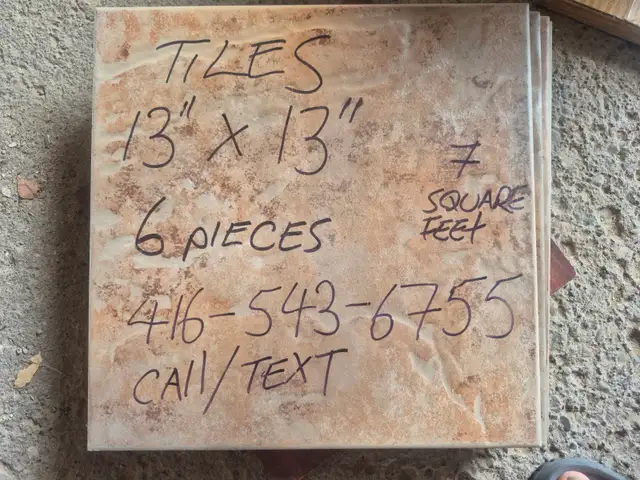 TILES
13" X 13"
7
SQUARE
FEET
6 PIECES
416-543-6755
CALL/TEXT